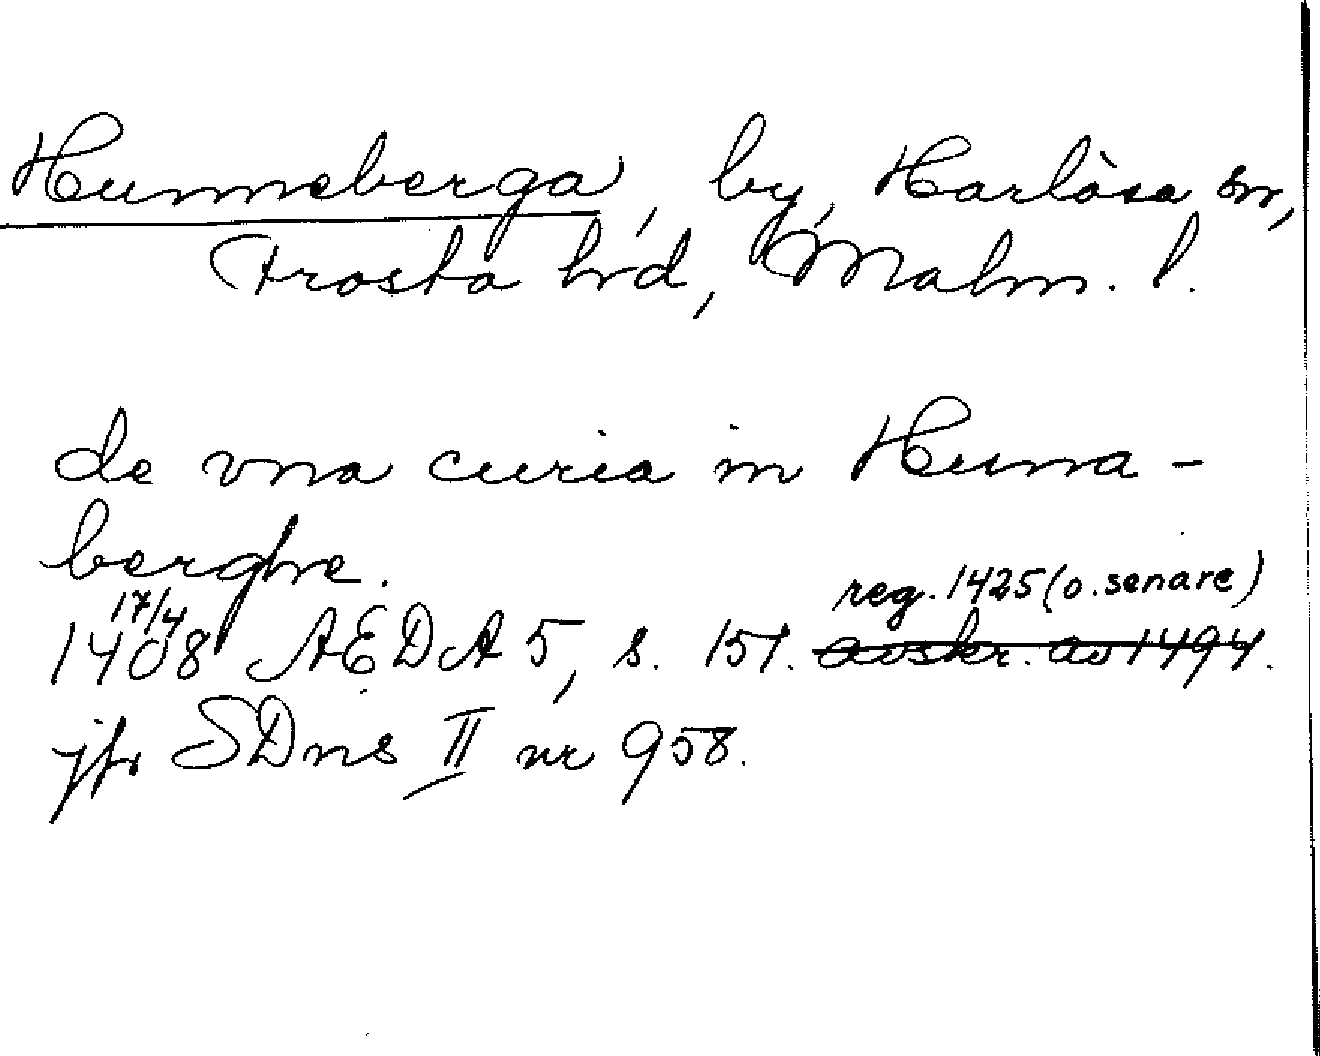 Hunneberga, by, Harlösa sn,
Frosta hrd, Malm. l.
de vna curia in Huna-
berghe.
17/4 reg. 1425 (o. senare)
1408 AEDA 5, s. 151. avskr. av 1494.
jfr SDns II nr 958.